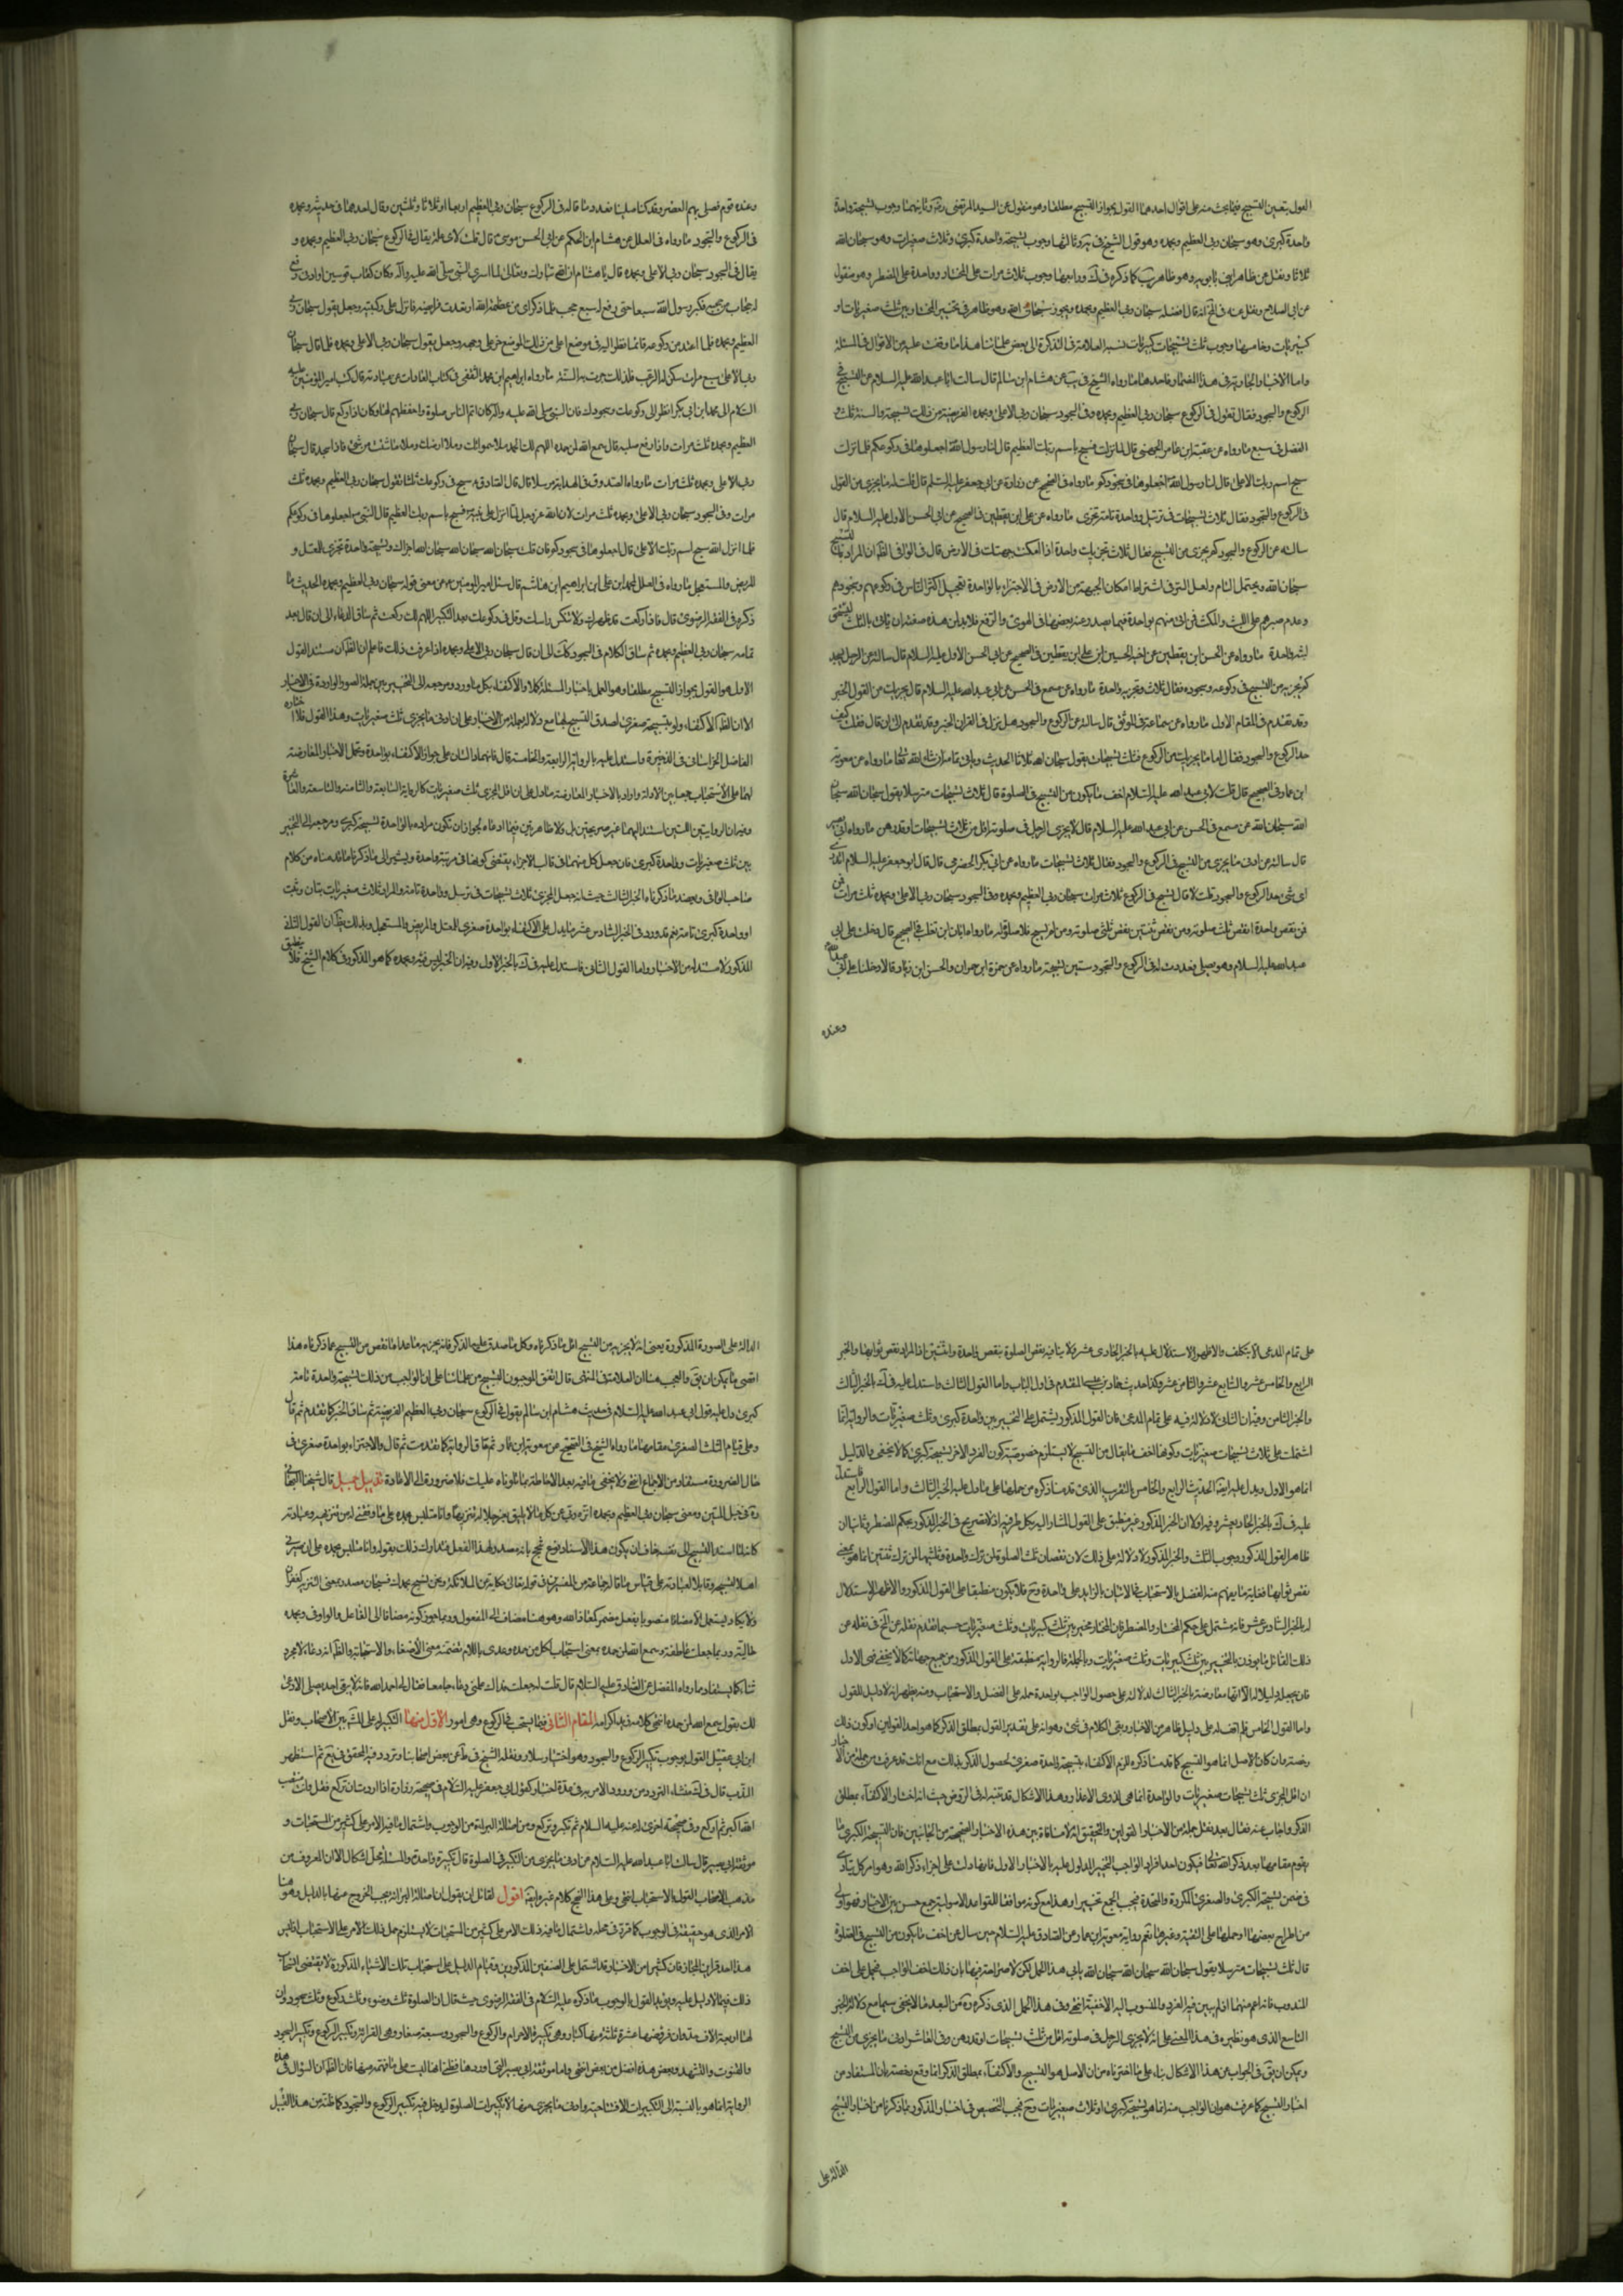 القول بتعين التسبيح فيما يجب منه على اقوال احدها القول بجواز التسبيح مطلقا وهو منقول عن السيد المرتضى رضه وثانيهما وجوب تسبيحة واحدة
واحدة كبرى وهو سبحان ربي العظيم وبحمده وهو قول الشيخ في يه وثالثها وجوب تسبيحة واحدة كبرى وثلاث صغريات وهو سبحان الله
ثلاثا ونقل عن ظاهر ابن بابويه وهو ظاهر يب كما ذكره في ك ورابعها وجوب ثلاث مرات على المختار وواحدة على المضطر وهو منقول
عن ابي الصلاح ونقل عنه في لف انه قال افضله سبحان ربي العظيم وبحمده ويجوز سبحان الله وهو ظاهر في تخيير المختار بين ثلث صغريات و
كبريات وخامسها وجوب ثلث تسبيحات كبريات نسبه العلامة في التذكرة الى بعض علمائنا هذا ما وقفت عليه من الاقوال في المسئلة
واما الاخبار الجارية في هذا المضمار فاحدها ما رواه الشيخ في يب عن هشام ابن سالم قال سالت ابا عبد الله عليه السلام عن التسبيح في
الركوع والسجود فقال تقول في الركوع سبحان ربي العظيم وبحمده وفي السجود سبحان ربي الاعلى وبحمده الفريضة من ذلك تسبيحة والسنة ثلث و
الفضل في سبع ما رواه عن عقبة ابن عامر الجهني قال لما نزلت فسبح باسم ربك العظيم قال لنا رسول الله اجعلوها في ركوعكم فلما نزلت
سبح اسم ربك الاعلى قال لنا رسول الله اجعلوها في سجودكم ما رواه في الصحيح عن زرارة عن ابي جعفر عليه السلام قال قلت له ما يجزي من القول
في الركوع والسجود فقال ثلاث تسبيحات في ترسل وواحدة تامة تجزي ما رواه عن علي ابن يقطين في الصحيح عن ابي الحسن الاول عليه السلام قال
سالته عن الركوع والسجود كم يجزي من التسبيح فقال ثلاث تجزيك واحدة اذا امكنت جبهتك في الارض قال في الوافي الظ ان المراد بالتسبيح
سبحان الله ويحتمل التام ولعل السر في اشتراط امكان الجبهة من الارض في الاجتزاء بالواحدة تعجيل اكثر الناس في ركوعهم وسجودهم
وعدم صبرهم على اللبث والمكث فمن اتى منهم بواحدة فربما يصدر عنه بعضها في الهوي والرفع فلابد لمن هذه صفته ان يأتي بالثلث ليتحقق
لبثه واحدة ما رواه عن الحسن ابن يقطين عن اخيه الحسين ابن علي ابن يقطين في الصحيح عن ابي الحسن الاول عليه السلام قال سالته عن الرجل يسجد
كم يجزيه من التسبيح في ركوعه وسجوده فقال ثلاث وتجزيه واحدة ما رواه عن مسمع في الحسن عن ابي عبد الله عليه السلام قال يجزيك من القول الخبر
وقد تقدم في المقام الاول ما رواه عن سماعة في الموثق قال سالته عن الركوع والسجود هل نزل في القران الخبر وقد تقدم الى ان قال فقلت كيف
حد الركوع والسجود فقال اما ما يجزيك من الركوع فثلث تسبيحات يقول سبحان الله ثلاثا الحديث ويأتي تمامه ان شاء الله تعالى ما رواه عن معوية
ابن عمار في الصحيح قال قلت لابي عبد الله عليه السلام اخف ما يكون من التسبيح في الصلوة قال ثلاث تسبيحات مترسلا يقول سبحان الله سبحان
الله سبحان الله عن مسمع في الحسن عن ابي عبد الله عليه السلام قال لا يجزي الرجل في صلوته اقل من ثلاث تسبيحات او قدرهن ما رواه ابي بصير
قال سالته عن ادنى ما يجزي من التسبيح في الركوع والسجود فقال ثلاث تسبيحات ما رواه عن ابي بكر الحضرمي قال قال ابو جعفر عليه السلام اتدري
اي شئ حد الركوع والسجود قلت لا قال تسبح في الركوع ثلاث مرات سبحان ربي العظيم وبحمده وفي السجود سبحان ربي الاعلى وبحمده ثلث مرات فمن
فمن نقص واحدة انقص ثلث صلوته ومن نقص ثنتين نقص ثلثي صلوته ومن لم يسبح فلا صلوة له ما رواه ابان ابن تغلب في الصحيح قال دخلت على ابي
عبد الله عليه السلام وهو يصلي فعددت له في الركوع والسجود ستين تسبيحة ما رواه عن حمزة ابن حمران والحسن ابن زياد قالا دخلنا على ابي عبد الله
وعنده
وعنده قوم فصلى بهم العصر وقد كنا صلينا فعددنا له في الركوع سبحان ربي العظيم اربعا او ثلاثا وثلثين وقال احدهما في حديثه وبحمده
في الركوع والسجود ما رواه في العلل عن هشام ابن الحكم عن ابي الحسن موسى قال قلت لاي علة يقال في الركوع سبحان ربي العظيم وبحمده و
يقال في السجود سبحان ربي الاعلى وبحمده قال يا هشام ان الله تبارك وتعالى لما اسرى النبي صلى الله عليه واله وكان كقاب قوسين او ادنى رفع
له حجاب من حجبه فكبر رسول الله سبعا حتى رفع له سبع حجب فلما ذكر ما راى من عظمة الله ارتعدت فرايصه فانزل على ركبتيه وجعل يقول سبحان ربي
العظيم وبحمده فلما اعتدل من ركوعه قائما نظر اليه في موضع اعلى من ذلك الموضع خر على وجهه وجعل يقول سبحان ربي الاعلى وبحمده فلما قال سبحان
ربي الاعلى سبع مرات سكن له الرعب فلذلك جرت به السنة ما رواه ابراهيم ابن محمد الثقفي في كتاب الغارات عن عباية قال كتب امير المؤمنين عليه
السلام الى محمد ابن ابي بكر انظر الى ركوعك وسجودك فان النبي صلى الله عليه واله كان اتم الناس صلوة واحفظهم لها وكان اذا ركع قال سبحان ربي
العظيم وبحمده ثلث مرات واذا رفع صلبه قال سمع الله لمن حمده اللهم لك الحمد ملاء سمواتك وملاء ارضك وملاء ما شئت من شئ فاذا سجد قال سبحان
ربي الاعلى وبحمده ثلث مرات ما رواه الصدوق في الهداية مرسلا قال قال الصادق سبح في ركوعك ثلثا تقول سبحان ربي العظيم وبحمده ثلث
مرات وفي السجود سبحان ربي الاعلى وبحمده ثلث مرات لان الله عز وجل لما انزل على نبيه فسبح باسم ربك العظيم قال النبي اجعلوها في ركوعكم
فلما انزل الله سبح اسم ربك الاعلى قال اجعلوها في سجودكم فان قلت سبحان الله سبحان الله سبحان الله اجزاك وتسبيحة واحدة تجزي للمعتل و
المريض والمستعجل ما رواه في العلل لمحمد ابن علي ابن ابراهيم ابن هاشم قال سئل امير المومنين عن معنى قوله سبحان ربي العظيم وبحمده الحديث ما
ذكره في الفقه الرضوي قال فاذا ركعت فمد ظهرك ولا تنكس راسك وقل في ركوعك بعد التكبير اللهم لك ركعت ثم ساق الدعاء الى ان قال بعد
تمامه سبحان ربي العظيم وبحمده ثم ساق الكلام في السجود كذلك الى ان قال سبحان ربي الاعلى وبحمده اذا عرفت ذلك فاعلم ان الظ ان مستند القول
الاول هو القول بجواز التسبيح مطلقا وهو العمل باخبار المسئلة كلا والاكتفاء بكل ما ورد ومرجعه الى التخيير بين جملة الصور الواردة في الاخبار
الا ان الظ الاكتفاء ولو بتسبيحة صغرى لصدق التسبيح بها مع دلالة جملة من الاخبار على ان ادنى ما يجزي ثلث صغريات وهذا القول اختاره
الفاضل الخراساني في الذخيرة واستدل عليه بالرواية الرابعة والخامسة قال فانهما دالتان على جواز الاكتفاء بواحدة وتحمل الاخبار المعارضة
لهما على الاستحباب جمعا بين الادلة واراد بالاخبار المعارضة ما دل على ان اقل المجزي ثلث صغريات كالرواية السابعة والثامنة والتاسعة والعاشرة
وفيه ان الروايتين اللتين استند اليهما غير صريحتين بل ولا ظاهرتين فيما ادعاه لجواز ان تكون مراده بالواحدة تسبيحة كبرى ومرجعه الى التخيير
بين ثلث صغريات وواحدة كبرى فان جعل كل منهما في قالب الاجزاء يقتضي كونهما في مرتبة واحدة ويشير الى ما ذكرنا ما قدمناه من كلام
صاحب الوافي ويعضد ما ذكرناه الخبر الثالث حيث انه جعل المجزي ثلاث تسبيحات في ترسل وواحدة تامة والمراد ثلاث صغريات بتان وتثبت
او واحدة كبرى تامة نعم قد ورد في الخبر السادس عشر ما يدل على الاكتفاء بواحدة صغرى للمعتل والمريض والمستعجل وبذلك يظ ان القول الثاني
المذكور لا مستند له من الاخبار واما القول الثاني فاستدل عليه في ك بالخبر الاول وفيه ان الخبر ليس فيه وبحمده كما هو المذكور في كلام الشيخ فلا ينطبق
على تمام المدعى الا بتكلف والاظهر الاستدلال عليه بالخبر الحادي عشر ولا ينافيه نقص الصلوة بنقص واحدة واثنتين اذ المراد نقص ثوابها والخبر
الرابع والخامس عشر والسابع عشر والثامن عشر وكذا حديث حماد بن عيسى المتقدم في اول الباب واما القول الثالث واستدل عليه في ك بالخبر الثالث
والخبر الثامن وفيه ان الثاني لا دلالة فيه على تمام المدعى فان القول المذكور يشتمل على التخيير بين واحدة كبرى وثلث صغريات والرواية انما
اشتملت على ثلاث تسبيحات صغريات وكونها اخف ما يقال من التسبيح لا يستلزم خصوصية كون الفرد الاخر تسبيحة كبرى كما لا يخفى والدليل
انما هو الاول ويدل عليه ايضا الحديث الرابع والخامس بالتقريب الذي قدمنا ذكره من حملها على ما دل عليه الخبر الثالث واما القول الرابع فاستدل
عليه في ك بالخبر الحادي عشر وفيه اولا ان الخبر المذكور غير منطبق على القول المشار اليه بكل طرفيه اذ لا تصريح في الخبر المذكور بحكم المضطر وثانيا ان
ظاهر القول المذكور وجوب الثلث والخبر المذكور لا دلالة على ذلك لان نقصان ثلث الصلوة لمن ترك واحدة وثلثيها لمن ترك ثنتين انما هو بمعنى
نقص ثوابها فغاية ما يفهم منه الفضل والاستحباب في الاتيان بالزايد على واحدة وح فلا يكون منطبقا على القول المذكور والاظهر الاستدلال
له بالخبر السادس عشر فانه مشتمل على حكم المختار والمضطر فان المختار مخير بين ثلث كبريات وثلث صغريات حسبما تقدم نقله عن لف في نقله عن
ذلك القائل ما يوذن بالتخيير بين ثلث كبريات وثلث صغريات وبالجملة فالرواية منطبقة على القول المذكور من جميع جهاته كما لا يخفى فهي الاولى
فان يجعل دليلا له الا انها معارضة بالخبر الثالث لدلالته على حصول الواجب بواحدة حمله على الفضل والاستحباب ومنه يظهر انه لا دليل للقول
واما القول الخامس فلم اقف له على دليل ظاهر من الاخبار وبقي الكلام في شئ وهو انه على تقدير القول بمطلق الذكر كما هو احد القولين او كون ذلك
رخصة وان كان الاصل انما هو التسبيح كما قدمنا ذكره يلزم الاكتفاء بتسبيحة واحدة صغرى لحصول الذكر بذلك مع انك قد عرفت من جملة من الاخبار
ان اقل المجزي ثلث تسبيحات صغريات والواحدة انما هي لذوي الاعذار وهذا الاشكال قد تنبه له في الروض حيث انه اختار الاكتفاء بمطلق
الذكر واجاب عنه فقال بعد نقل جملة من الاخبار والقولين والتحقيق انه لا منافاة بين هذه الاخبار الصحيحة من الجانبين فان التسبيحة الكبرى ما
يقوم مقامها يعد ذكر الله تعالى فيكون احد افراد الواجب التخييري المدلول عليه بالاخبار الاول فانها دلت على اجزاء ذكر الله وهو امر كلي يتأدى
في ضمن تسبيحة الكبرى والصغرى المكررة والمتحدة فيجب الجمع تخييرا وهذا مع كونه موافقا للقواعد الاصولية جمع حسن بين الاخبار فهو اولى
من اطراح بعضها او حملها على التقية وغيرها نعم رواية معوية ابن عمار عن الصادق عليه السلام حين سأل عن اخف ما يكون من التسبيح في الصلوة
قال ثلث تسبيحات مترسلا يقول سبحان الله سبحان الله سبحان الله يأبى هذا الحمل لكن لا صراحة فيها بان ذلك اخف الواجب فيحمل على اخف
المندوب فانه اعم منهما اذ لم يبين فيه الفرد المنسوب اليه الاخفية انتهى وفي هذا الحمل الذي ذكره ره من البعد ما لا يخفى سيما مع دلالة الخبر
التاسع الذي هو نظيره في هذا المعنى على انه لا يجزي الرجل في صلوته اقل من ثلث تسبيحات او قدرهن وفي العاشر ادنى ما يجزي من التسبيح
ويمكن ان يق في الجواب عن هذا الاشكال بناء على ما اخترناه من ان الاصل هو التسبيح والاكتفاء بمطلق الذكر انما وقع رخصة بان المستفاد من
اخبار التسبيح كما عرفت هو ان الواجب منه انما هو تسبيحة كبرى او ثلاث صغريات وح فيجب التخصيص في اخبار الذكر بما ذكرنا من اخبار التسبيح
الدالة على
الدالة على الصورة المذكورة بمعنى انه لا يجزيه من التسبيح اقل ما ذكرناه وكل ما صدق عليه الذكر فانه يجزيه ما عدا ما نقص من التسبيح عما ذكرناه هذا
اقصى ما يمكن ان يق والعجب هنا ان العلامة في المنتهى قال اتفق الموجبون للتسبيح من علمائنا على ان الواجب من ذلك تسبيحة واحدة تامة
كبرى دل عليه قول ابي عبد الله عليه السلام في حديث هشام ابن سالم يقول في الركوع سبحان ربي العظيم الفريضة ثم ساق الخبر كما تقدم ثم قال
وعلى قيام الثلث الصغرى مقامها ما رواه الشيخ في الصحيح عن معوية ابن عمار ثم ساق الرواية كما تقدمت ثم قال والاجتزاء بواحدة صغرى في
حال الضرورة مستفاد من الاجماع انتهى ولا يخفى ما فيه بعد الاحاطة بما تلوناه عليك فلا ضرورة الى الاعادة تذييل جميل قال شيخنا البهائي
ره في حبل المتين ومعنى سبحان ربي العظيم وبحمده انزه ربي عن كل ما لا يليق بعز جلاله تنزيها وانا متلبس بحمده على ما وفقني له من تنزيهه وعبادته
كانه لما اسند التسبيح الى نفسه خاف ان يكون هذا الاسناد نوع تبجح بانه مصدر لهذا الفعل فتدارك ذلك بقوله وانا متلبس بحمده على ان صيرني
اهلا لتسبيحه وقابلا لعبادته على قياس ما قال جماعة من المفسرين في قوله تعالى حكاية عن الملائكة ونحن نسبح بحمدك فسبحان مصدر بمعنى التنزيه كغفران
ولا يكاد يستعمل الا مضافا منصوبا بفعل مضمر كمعاذ الله وهو هنا مضاف الى المفعول وربما جوز كونه مضافا الى الفاعل والواو في وبحمده
حالية وربما جعلت عاطفة وسمع الله لمن حمده بمعنى استجاب لكل من حمده وعدي باللام لتضمنه معنى الاصغاء والاستجابة والظ انه دعاء لا مجرد
ثناء كما يستفاد مما رواه المفضل عن الصادق عليه السلام قال قلت له جعلت فداك علمني دعاء جامعا فقال له احمد الله فانه لا يبقى احد يصلي الا دعا
لك يقول سمع الله لمن حمده انتهى كلامه زيد اكرامه المقام الثاني فيما يستحب في الركوع وهي امور الاول منها التكبير على المشهور بين الاصحاب ونقل
ابن ابي عقيل القول بوجوب تكبير الركوع والسجود وهو اختيار سلار ونقله الشيخ في ط عن بعض اصحابنا وتردد فيه المحقق في يع ثم استظهر
الندب قال في ك منشأ التردد من ورود الامر به في عدة اخبار كقول ابي جعفر عليه السلام في صحيحة زرارة اذا اردت ان تركع فقل وانت منتصب
الله اكبر ثم اركع وفي صحيحة اخرى له عنه عليه السلام ثم تكبر وتركع ومن اصالة البراءة من الوجوب واشتمال ما فيه الامر على كثير من المستحبات و
موثقة ابي بصير قال سالت ابا عبد الله عليه السلام عن ادنى ما يجزي من التكبير في الصلوة قال تكبيرة واحدة والمسئلة محل اشكال الا ان المعروف من
مذهب الاصحاب القول بالاستحباب انتهى وعلى هذا النهج كلام غيره ايضا اقول لقائل ان يقول ان اصالة البراءة يجب الخروج عنها بالدليل وهو هنا
الامر الذي هو حقيقة في الوجوب كما قرر في محله واشتمال ما فيه ذلك الامر على كثير من المستحبات لا يستلزم حمل ذلك الامر على الاستحباب اذ ليس
هذا احد قراين المجاز فان كثيرا من الاخبار قد اشتمل على الصنفين المذكورين وقيام الدليل على استحباب تلك الاشياء المذكورة لا يقتضي انسحاب
ذلك فيما لا دليل عليه ويؤيد القول بالوجوب ما ذكره عليه السلام في الفقه الرضوي حيث قال ان الصلوة ثلث وضوء وثلث ركوع وثلث سجود وان
لها اربعة الاف حد وان فروضها عشرة ثلثة منها كبار وهي تكبيرة الاحرام والركوع والسجود وسبعة صغار وهي القراءة وتكبير الركوع وتكبير السجود
والقنوت والتشهد وبعض هذه افضل من بعض انتهى واما موثقة ابي بصير التي اوردها فظني انها ليست على ما فهمه منها فان الظ ان السؤال في هذه
الرواية انما هو بالنسبة الى التكبيرات الافتتاحية وادنى ما يجزي منها لا تكبيرات الصلوة ليدخل فيه تكبير الركوع والسجود كما ظنه من هذا القبيل